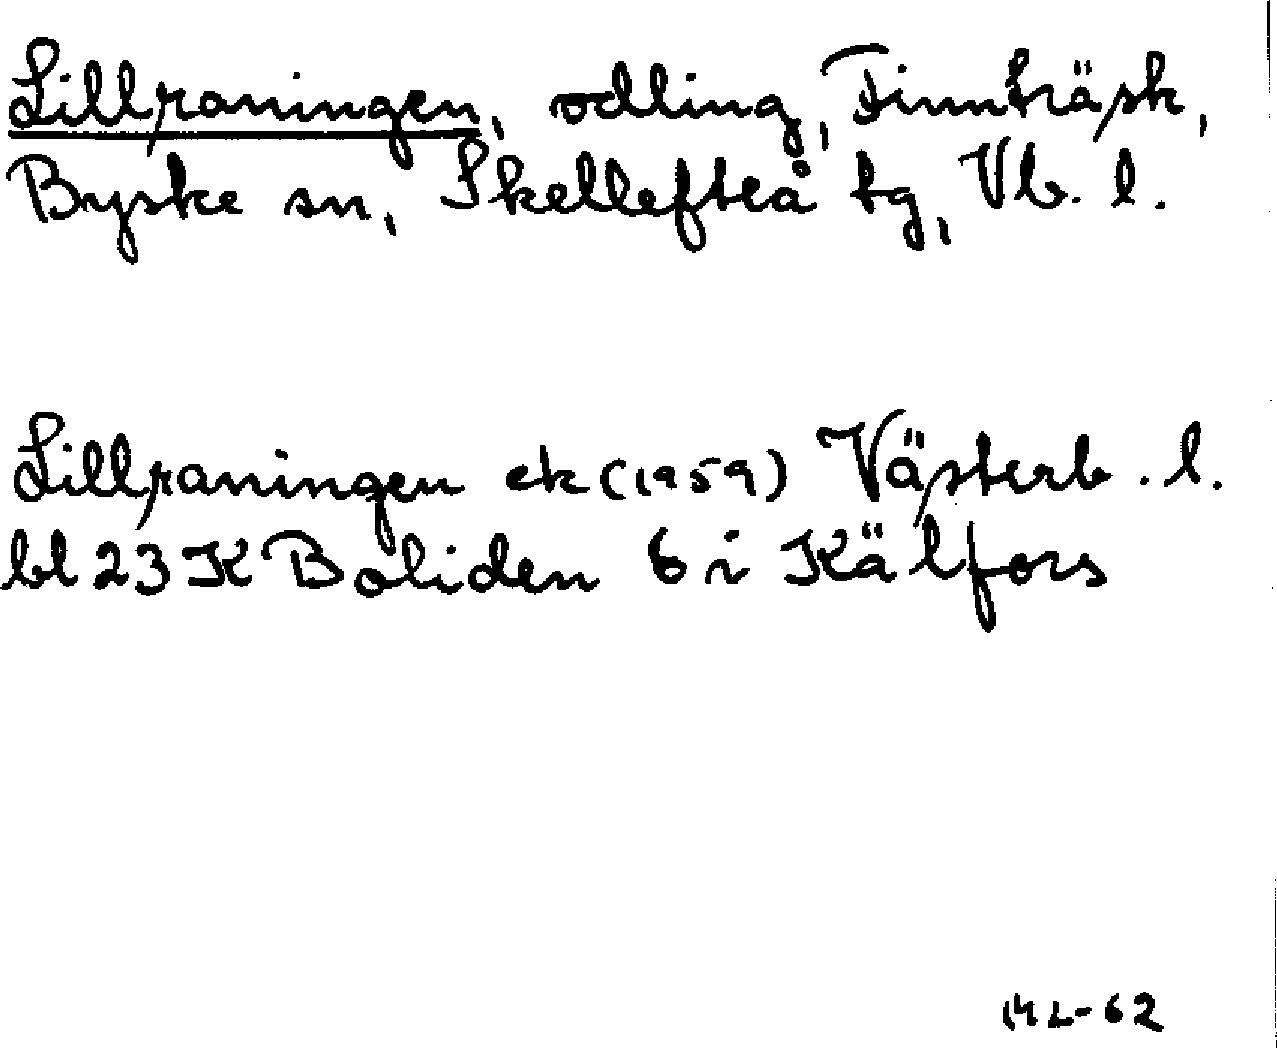 Lillraningen, odling, Finnträsk,
Byske sn, Skellefteå tg, Vb. l.
Lillraningen ek (1959) Västerb. l.
bl 23 K Boliden 6 i Kälfors
ML-62